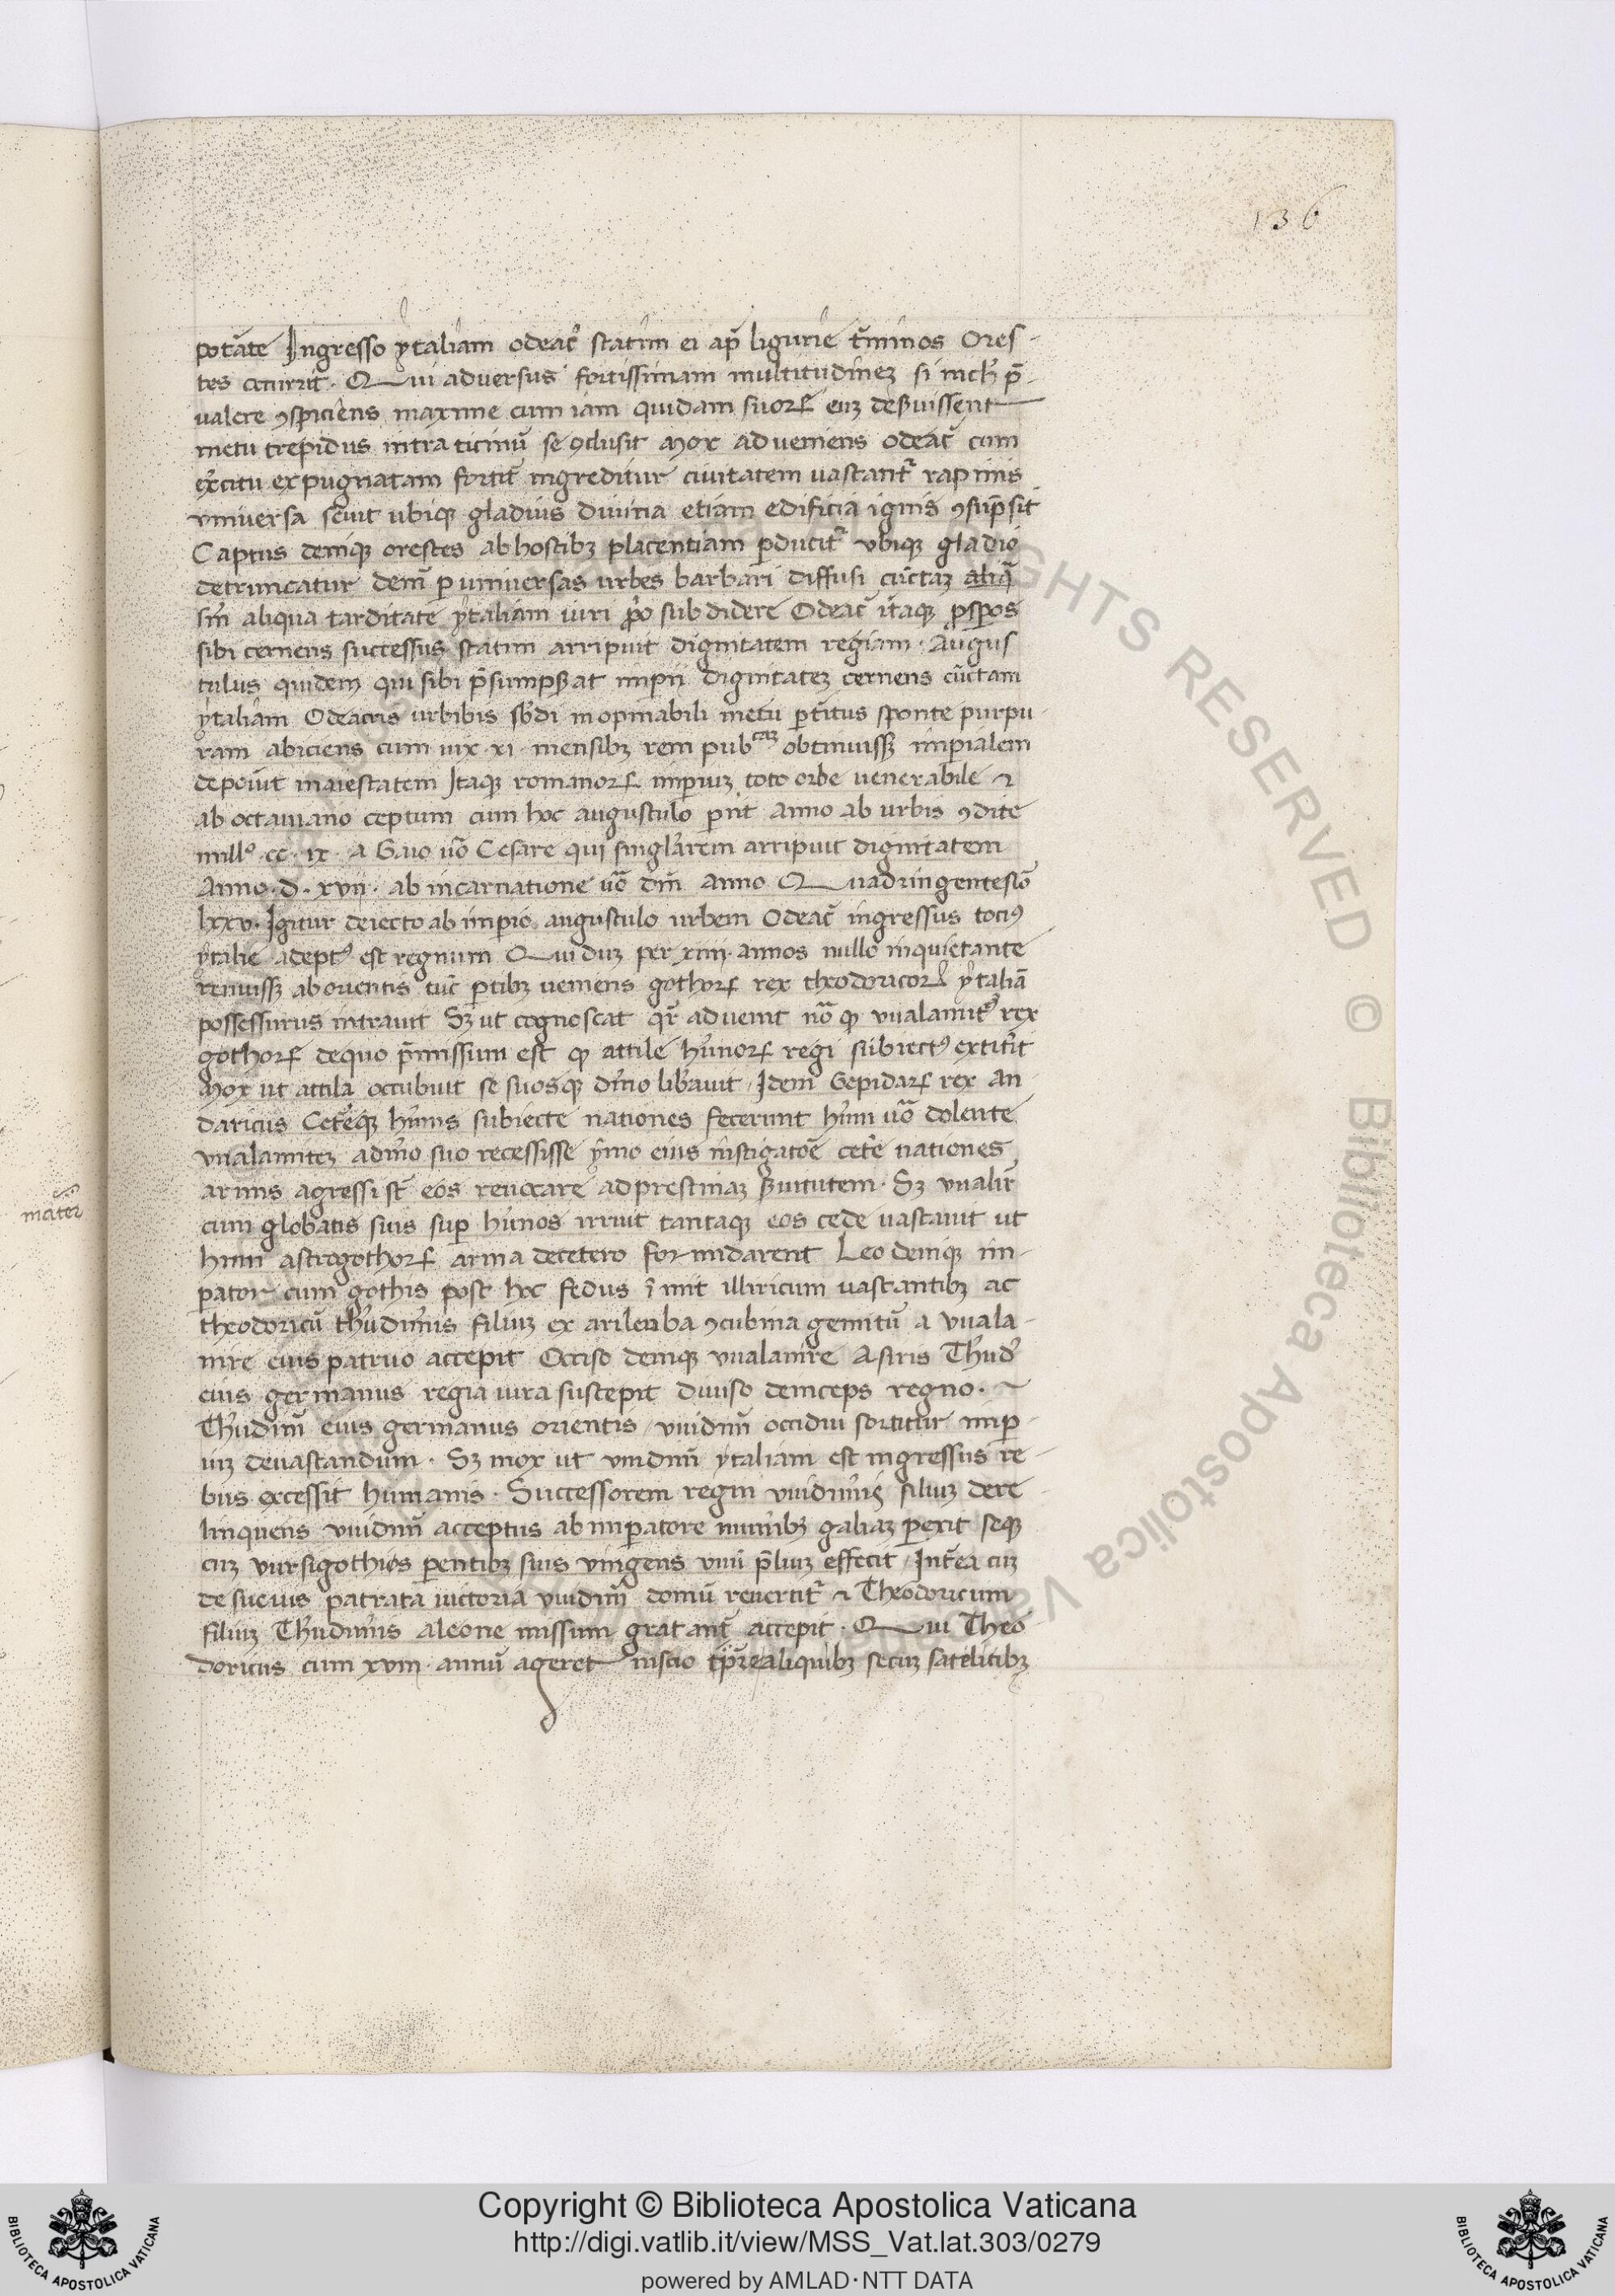 136
potãte Ingresso ytaliam odeac̃ statim ei ap̃ ligurie t̃minos Ores-
tes occurrit. Qui adversus fortissimam multitudinez si p̃-
valere ꝯspiciens maxime cum iam quidam suorꝝ euz deßuissent
metu trepidus intra ticinũ se ꝯclusit Mox adveniens odeac̃ cum
ex̃citu expugnatam fortit̃ ingreditur civitatem vastant̃ rapinis
universa sevit ubiqꝫ gladius divina etiam edificia ignis ꝯsũpsit
Captus deniqꝫ orestes ab hostibꝫ placentiam ꝑducit̃ ubiqꝫ gladio
detruncatur dem̃ ꝑ universas urbes barbari diffusi cũctaz aliq̃
siñ aliqua tarditate ytaliam iuri ꝓo subdidere Odeac̃ itaqꝫ ꝓsꝑos
sibi cernens successus statim arripuit dignitatem regiam. Augus
tulus quidem qui sibi p̃sumpßat impii dignitatez cernens cũctam
ytaliam Odeacris urbibis sb̃di inopinabili metu ꝑt̃itus sponte purpu-
ram abiciens cum vix xi mensibꝫ rem pubcaz obtinuissꝫ imperialem
depoint maiestatem Itaqꝫ romanorꝝ imperiuz toto orbe venerabile &
ab octauiano ceptum cum hoc augustulo ꝑiit Anno ab urbis ꝯdite
millo cc. ix. A Gaio uo Cesare qui singlarem arripuit dignitatem
Anno. d. xvii. ab incarnatione uo dm̃ anno Quadringentesio
lxxv. Igitur deiecto ab imperio augustulo urbem Odeac̃ ingressus tociꝰ
ytalie adeptꝰ est regnum Qui duz per xiiii annos nullo inquietante
tenuissꝫ ab orientis tuc̃ ꝑtibꝫ veniens gothorꝝ rex theodoricorꝝ ytaliã
possessurus intrauit Sꝫ ut cognoscat qr̃ advenit nõ ꝙ vualamitꝰ rex
gothorꝝ dequo p̃missum est ꝙ attile hũnorꝝ regi subiectꝰ extitit
Mox ut attila occubuit se suosqꝫ dñio lib̃auit. Idem Gepidarꝝ rex An
daricus Cet̃eqꝫ hũnis subiecte nationes fecerunt hũni uõ dolente
vualamitez adñio suo recessisse ymo eius instigatõe cet̃e nationes
armis agressi st̃ eos reuocare adprestinaz ßuitutem. Sꝫ vualir̃
cum globatis suis suꝑ hũnos irruit tantaqꝫ eos cede vastauit ut
hunni astrogothorꝝ arma decetero formidarent Leo deniqꝫ im-
ꝑator cum gothis post hoc fedus ĩnnit illiricum vastantibꝫ ac
theodoricũ th̃udim̃is filiuz ex arileuba ꝯcubina genitũ a vuala-
mire eius patruo accepit Occiso deniqꝫ vualamire Asiris Thud̃
eius germanus regia iura suscepit diviso deinceps regno. ~
Th̃udim̃ eius germanus orientis, vuidim̃ occidui sortitur imꝑ-
iuz devastandum. Sꝫ mox ut vuidim̃ ytaliam est ingressus re-
bus excessit humanis. Successorem regni vuidim̃is filiuz dere-
linquens vuidim̃ acceptus ab imperatore munibꝫ galiaz ꝑexit seqꝫ
cuz vursigothios ꝑentibꝫ suis vingens unũ p̃liuz effecit. Int̃ea cuz
de sueuis patrata victoria vuidim̃ domũ revertit̃ & Theodoricum
filiuz Thudim̃is aleone missum gratant̃ accepit. Qui Theo-
doricus cum xviii. annũ ageret inscio tp̃re aliquibꝫ secuz satelitibꝫ
mater
Copyright © Biblioteca Apostolica Vaticana
http://digi.vatlib.it/view/MSS_Vat.lat.303/0279
powered by AMLAD·NTT DATA
BIBLIOTECA APOSTOLICA VATICANA
BIBLIOTECA APOSTOLICA VATICANA